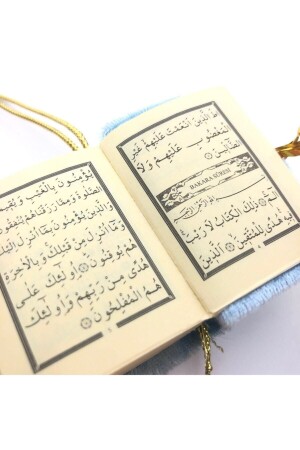 طَ الَّذِينَ اَنْعَمْتَ عَلَيْهِمْ غَيْرِ
الْمَغْضُوبِ عَلَيْهِمْ وَلَا
الضَّالِّينَ
BAKARA SÛRESİ
بِسْمِ اللهِ الرَّحْمٰنِ الرَّحِيمِ
الٓمٓ ذٰلِكَ الْكِتَابُ لَا رَيْبَ
فِيهِ هُدًى لِلْمُتَّقِينَ الَّذِينَ
يُؤْمِنُونَ بِالْغَيْبِ وَيُقِيمُونَ
الصَّلٰوةَ وَمِمَّا رَزَقْنَاهُمْ يُنْفِقُونَ
وَالَّذِينَ يُؤْمِنُونَ بِمَا اُنْزِلَ اِلَيْكَ
وَمَا اُنْزِلَ مِنْ قَبْلِكَ وَبِالْاٰخِرَةِ
هُمْ يُوقِنُونَ اُولٰئِكَ عَلٰى
هُدًى مِنْ رَبِّهِمْ وَاُولٰئِكَ
هُمُ الْمُفْلِحُونَ